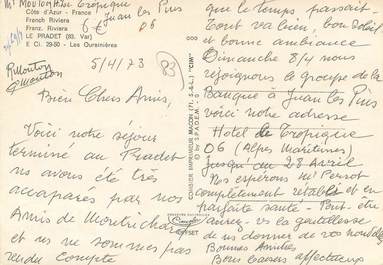 Mr MOUTON Hotel Tropique
Juan les Pins
06
Côte d'Azur - France
French Riviera
Franz. Riviera
LE PRADET (83. Var)
E. Cl. 29-50 - Les Oursinières
6 €
R Mouton
G Mouton
5/4/73
83
Bien Chers Amis,
Voici notre séjour
terminé au Pradet
ns avons été très
accaparés par nos
Amis de Montrichard
et ns ne sommes pas
rendu compte
COMBIER IMPRIMEUR MACON (FT. S.-&-L.) "CIM"
by S.P.A.D.E.M.
que le temps passait -
Tout va bien, bon soleil
et bonne ambiance
Dimanche 8/4 nous
rejoignons le groupe de la
Banque à Juan les Pins
voici notre adresse
Hotel le Tropique
06 (Alpes Maritimes)
jusqu'au 28 Avril
Ns espérons Mr Perrot
complètement rétabli et en
parfaite santé - Peut-être
aurez-vs la gentillesse
de ns donner de vos nouvelles
Bonnes Amitiés
Bons baisers affectueux